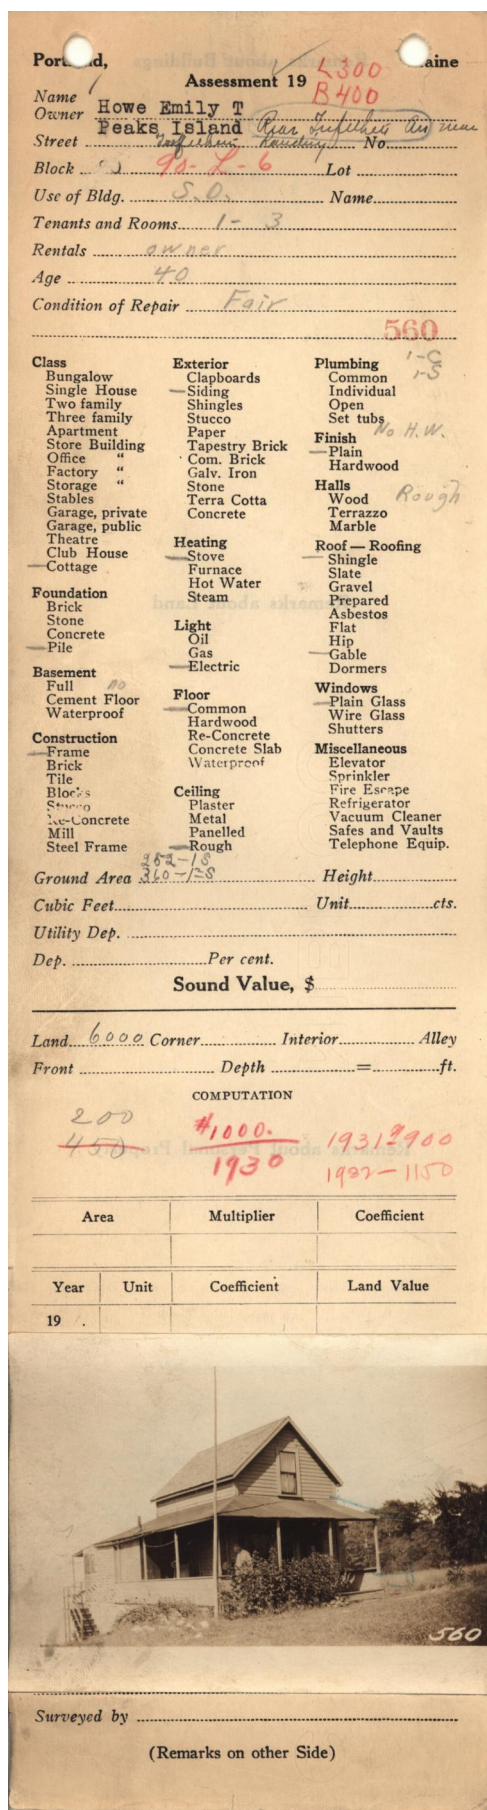 Portland, Maine
Assessment 19 L 300
B 400
Name
Owner Howe Emily T
Peaks Island Rear Trefethen Av near
Street Trefethen Landing No.
Block 90-L-6 Lot
Use of Bldg. S.D. Name
Tenants and Rooms 1- 3
Rentals owner
Age 40
Condition of Repair Fair
560
Class
Bungalow
Single House
Two family
Three family
Apartment
Store Building
Office "
Factory "
Storage "
Stables
Garage, private
Garage, public
Theatre
Club House
Cottage
Foundation
Brick
Stone
Concrete
Pile
Basement
Full no
Cement Floor
Waterproof
Construction
Frame
Brick
Tile
Blocks
Stucco
Re-Concrete
Mill
Steel Frame
Exterior
Clapboards
Siding
Shingles
Stucco
Paper
Tapestry Brick
Com. Brick
Galv. Iron
Stone
Terra Cotta
Concrete
Heating
Stove
Furnace
Hot Water
Steam
Light
Oil
Gas
Electric
Floor
Common
Hardwood
Re-Concrete
Concrete Slab
Waterproof
Ceiling
Plaster
Metal
Panelled
Rough
Plumbing 1-C
Common 1-S
Individual
Open
Set tubs
No H.W.
Finish
Plain
Hardwood
Halls
Wood Rough
Terrazzo
Marble
Roof — Roofing
Shingle
Slate
Gravel
Prepared
Asbestos
Flat
Hip
Gable
Dormers
Windows
Plain Glass
Wire Glass
Shutters
Miscellaneous
Elevator
Sprinkler
Fire Escape
Refrigerator
Vacuum Cleaner
Safes and Vaults
Telephone Equip.
252-1S
Ground Area 360-1½S Height
Cubic Feet Unit cts.
Utility Dep.
Dep. Per cent.
Sound Value, $
Land 6000 Corner Interior Alley
Front Depth = ft.
COMPUTATION
200
450
$1000.
1930
1931 $900
1932-1150
Area Multiplier Coefficient
Year Unit Coefficient Land Value
19
560
Surveyed by
(Remarks on other Side)